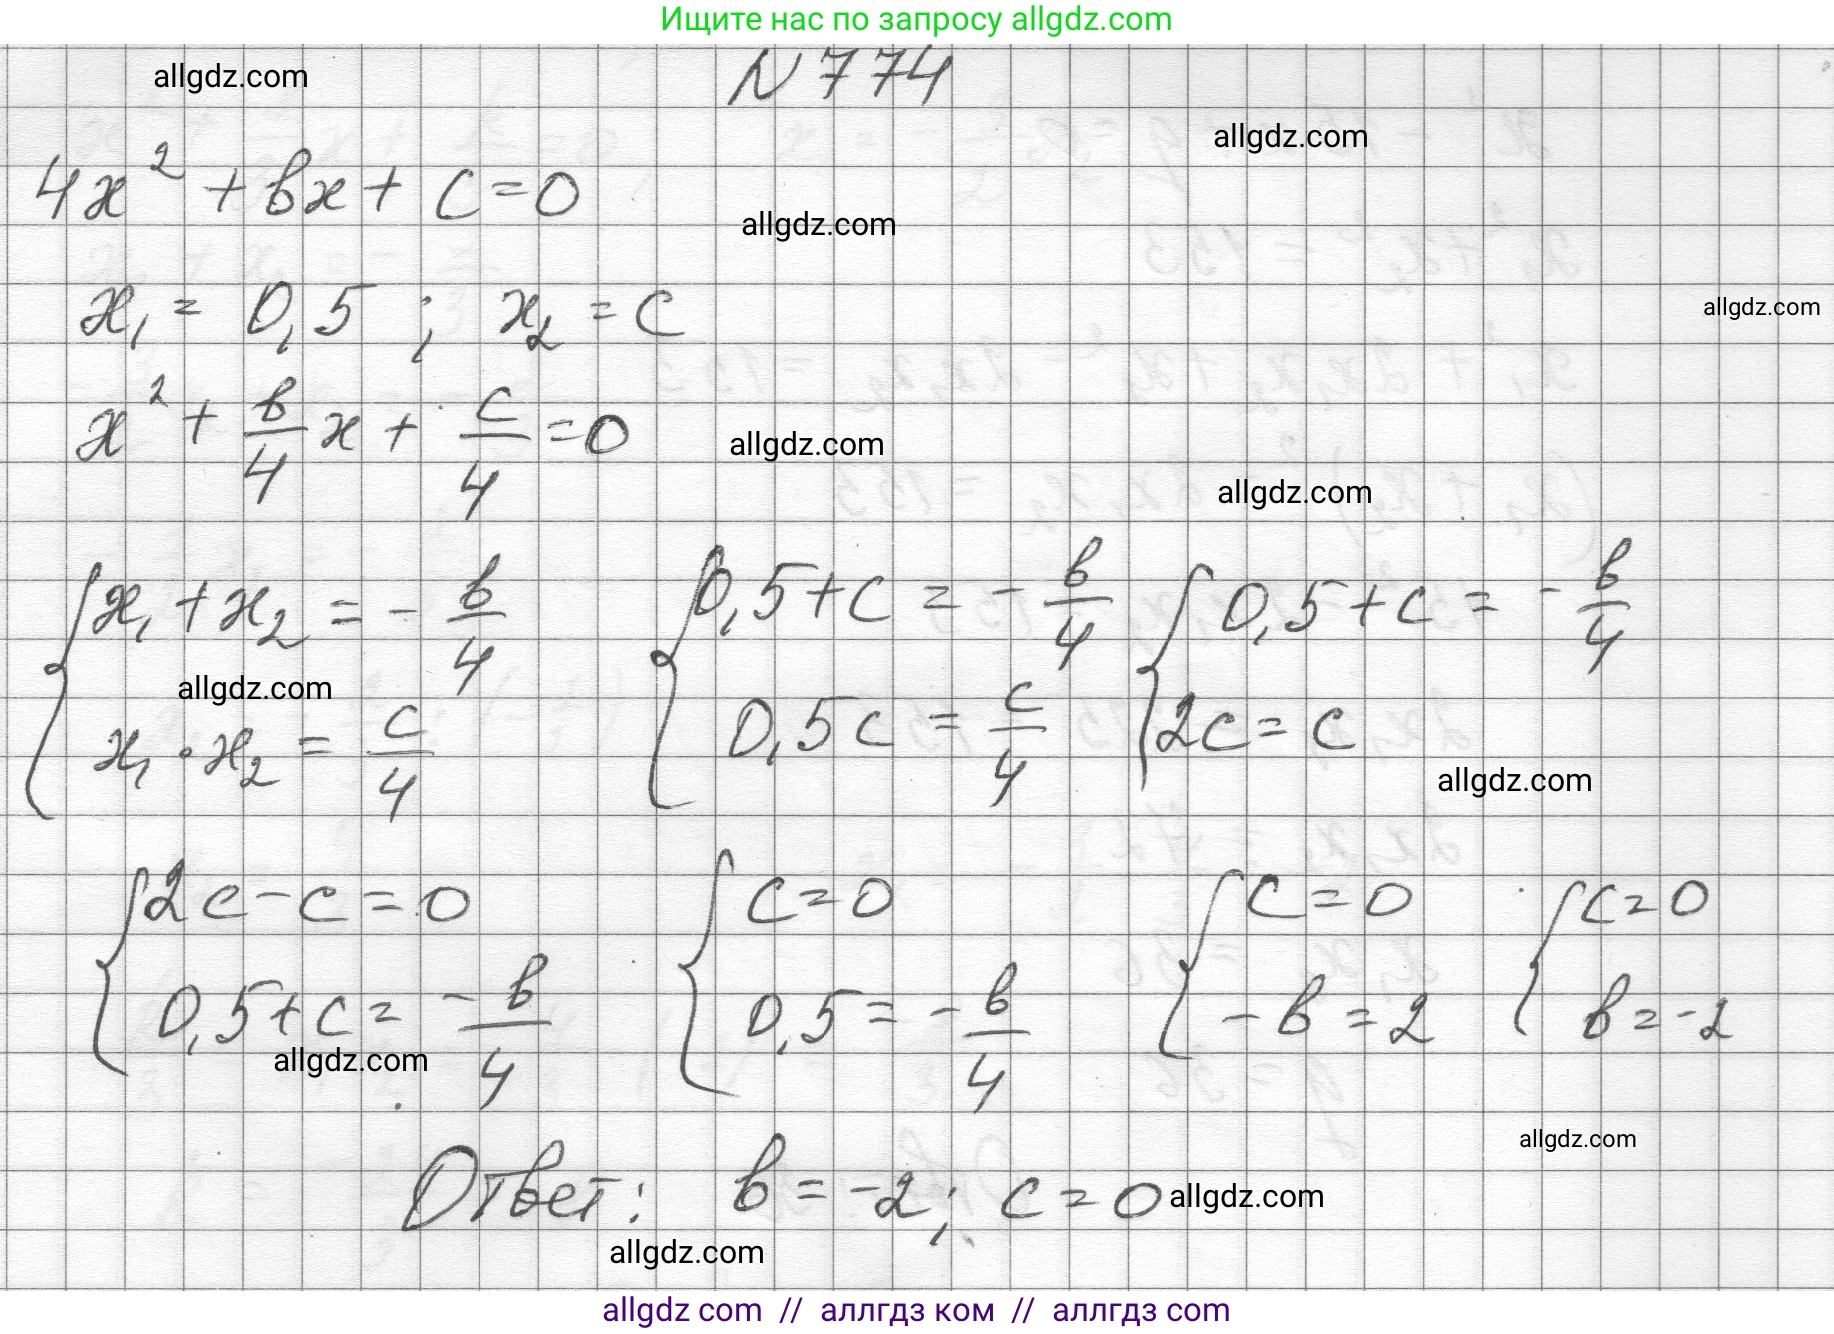 Ищите нас по запросу allgdz.com
allgdz.com
N 774
allgdz.com
4x² + bx + c = 0
allgdz.com
x₁ = 0,5 ; x₂ = c
allgdz.com
x² + b/4 x + c/4 = 0
allgdz.com
allgdz.com
{ x₁ + x₂ = - b/4 { 0,5 + c = - b/4 { 0,5 + c = - b/4
allgdz.com
x₁ · x₂ = c/4 0,5c = c/4 2c = c
allgdz.com
{ 2c - c = 0 { c = 0 { c = 0 { c = 0
0,5 + c = - b/4 0,5 = - b/4 - b = 2 b = -2
allgdz.com
allgdz.com
Ответ: b = -2; c = 0
allgdz.com
allgdz.com
allgdz com // аллгдз ком // аллгдз com